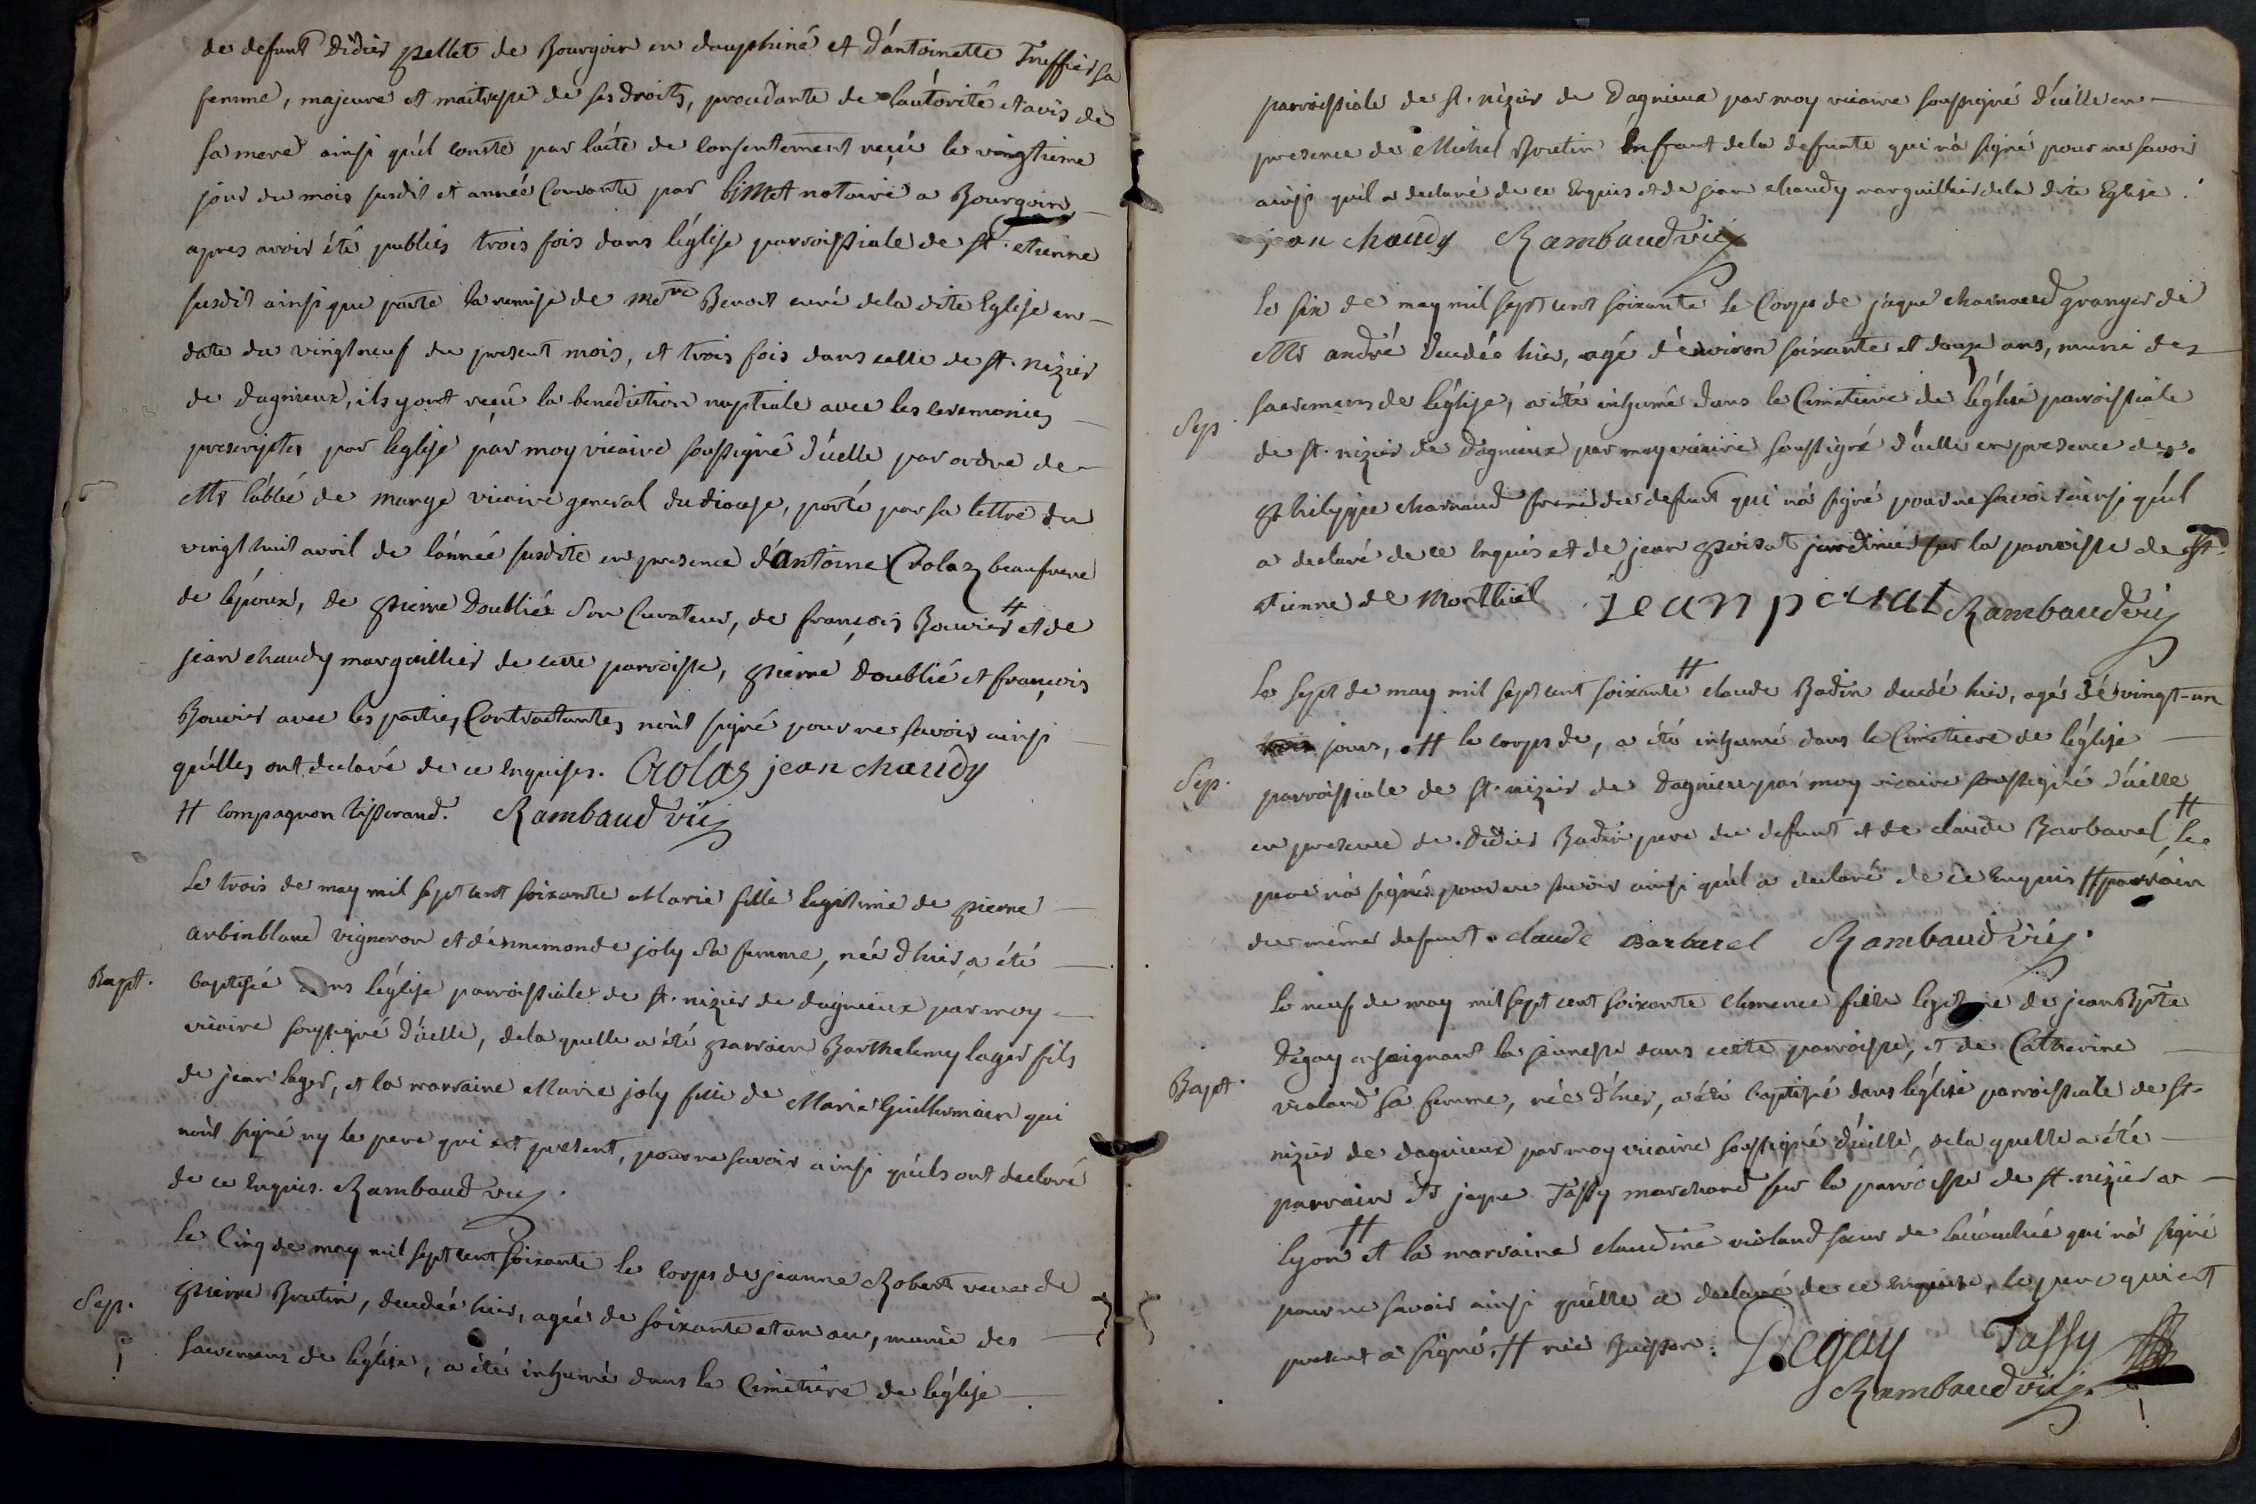 de defunt didier pellet de Bourgoin en dauphiné et d'antoinette Truffier sa
femme, majeure et maitresse de ses droits, procedante de l'autorité et avis de
sa mere ainsi qu'il conste par l'acte de consentement reçu le vingtieme
jour du mois susdit et année Courante par notaire a Bourgoin
apres avoir été publiés trois fois dans l'église parroissiale de st. etienne
susdit ainsi que porte la remise de Me Benoit curé de la dite Eglise en
date du vingt neuf du present mois, et trois fois dans celle de st. nizier
de dagnieux, ils y ont reçu la benediction nuptiale avec les ceremonies
prescriptes par l'eglise par moy vicaire soussigné d'icelle par ordre de
Mr l'abbé de Marge vicaire general du diocese, porté par sa lettre du
vingt huit avril de l'année susdite en presence d'antoine Crolaz beaufrere
de l'epoux, de pierre doublié son Curateur, de françois Bouvier # et de
jean chaudy marguillier de cette parroisse, pierre doublié et françois
Bouvier avec les parties Contractantes n'ont signé pour ne savoir ainsi
qu'elles ont declaré de ce Enquises. Crolas jean chaudy
# compagnon tisserand. Rambaud vic
Le trois de may mil sept cent soixante Marie fille legitime de pierre
arbinblanc vigneron et d'ennemonde joly sa femme, née d'hier, a été
Bapt. baptisée dans l'église parroissiale de st. nizier de dagnieux par moy
vicaire soussigné d'icelle, de la quelle a été parrain Barthelemy lager fils
de jean lager, et la marraine Marie joly fille de Marie Guillermain qui
n'ont signé ny le pere qui est present, pour ne savoir ainsi qu'ils ont declaré
de ce Enquis. Rambaud vic
Le Cinq de may mil sept cent soixante le corps de jeanne Robert veuve de
Sep. pierre Brutin, decedée hier, agée de soixante et un an, munie des
sacremens de l'église, a été inhumé dans le Cimetiere de l'église
parroissiale de st. nizier de Dagnieux par moy vicaire soussigné d'icelle en
presence de Michel Brutin Enfant de la defunte qui n'a signé pour ne savoir
ainsi qu'il a declaré de ce Enquis et de jean chaudy marguillier de la dite Eglise.
jean chaudy Rambaud vic
Le six de may mil sept cent soixante le Corps de jaque charnaud granger de
Mr andré decedé hier, agé d'environ soixante et douze ans, muni des
Sep. sacremens de l'église, a été inhumé dans le Cimetiere de l'église parroissiale
de st. nizier de Dagnieux par moy vicaire soussigné d'icelle en presence de
philippe charnaud frere du defunt qui n'a signé pour ne savoir ainsi qu'il
a declaré de ce Enquis et de jean jardinier sur la parroisse de st.
etienne de Montluel jean Rambaud vic
Le sept de may mil sept cent soixante # claude Badin decedé hier, agé de vingt-un
jours, # le corps de, a été inhumé dans le Cimetiere de l'église
Sep. parroissiale de st. nizier de Dagnieux par moy vicaire soussigné d'icelle
en presence de didier Badin pere du defunt et de claude Barbarel # le
pere n'a signé pour ne savoir ainsi qu'il a declaré de ce Enquis # parrain
du même defunt. claude Barbarel Rambaud vic.
Le neuf de may mil sept cent soixante clemence fille legitime de jean Bpte
Degay enseignant la jeunesse dans cette parroisse, et de Catherine
Bapt. violand sa femme, née d'hier, a été baptisée dans l'église parroissiale de st.
nizier de dagnieux par moy vicaire soussigné d'icelle, de la quelle a été
parrain Sr jaque Tassy marchand sur la parroisse de st. nizier a
Lyon # et la marraine claudine violand sœur de l'accouchée qui n'a signé
pour ne savoir ainsi qu'elle a declaré de ce enquise, le pere qui est
present a signé, # née Buisson. Degay Tassy
Rambaud vic.